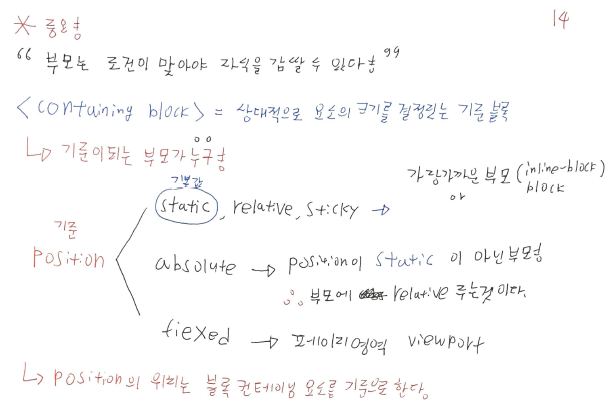 14
* 중요함
“ 부모는 조건이 맞아야 자식을 감쌀 수 있다능 ”
<containing block> = 상대적으로 요소의 크기를 결정짓는 기준 블록
↳ 기준이되는 부모가 누구능
기본값
static, relative, sticky →
가장가까운 부모 (inline-block)
or block
기준
position
absolute → position이 static 이 아닌부모
∴ 부모에 relative 주는것이다.
fiexed → viewport
↳ position의 위치는 블록 컨테이닝 요소를 기준으로 한다.